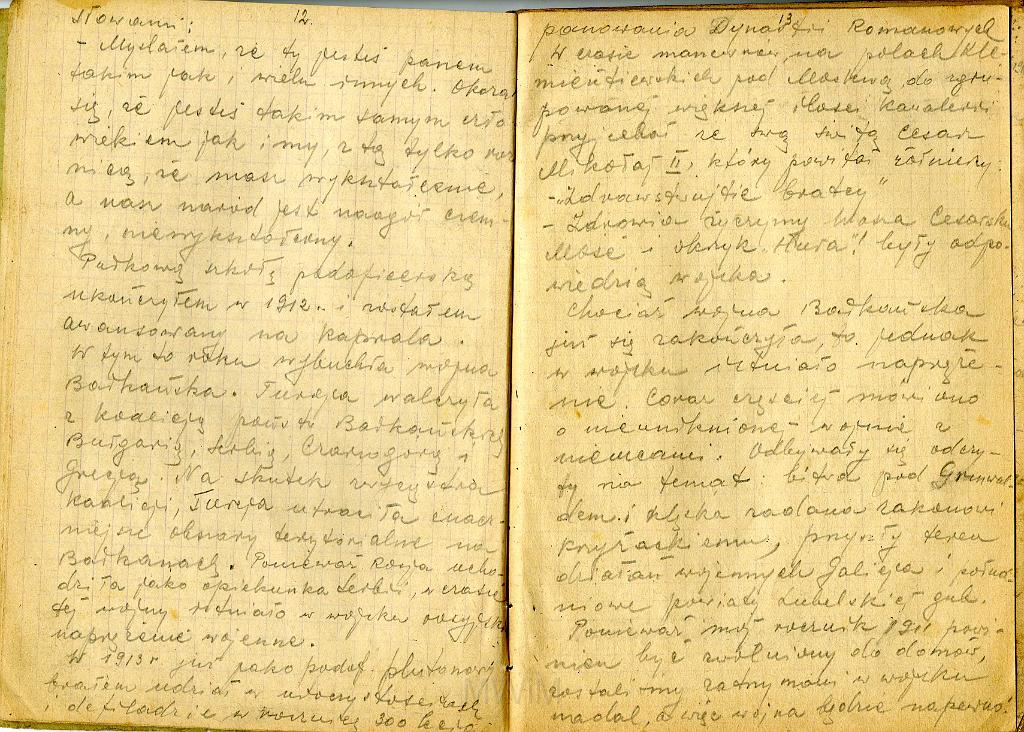 12.
słowami:
- Myślałem, że ty jesteś panem
takim jak i wielu innych. Okazało
się, że jesteś takim samym czło
wiekiem jak i my, z tą tylko róż
nicą, że masz wykształcenie,
a nasz naród jest naogół ciem-
ny, niewykształcony.
Pułkową szkołę podoficerską
ukończyłem w 1912. i zostałem
awansowany na kaprala.
W tym to roku wybuchła wojna
Bałkańska. Turcja walczyła
z koalicją państw Bałkańskich
Bułgarią, Serbią, Czarnogórą i
Grecją. Na skutek zwycięstwa
koalicji, Turcja utraciła znacz-
niejsze obszary terytorialne na
Bałkanach. Ponieważ Rosja ucho-
dziła jako opiekunka Serbii, w czasie
tej wojny istniało w wojsku rosyjsk.
naprężenie wojenne.
W 1913 r już jako podof. plutonowy
brałem udział w uroczystościach
i defiladzie w rocznicę 300 lecia
13
panowania Dynastii Romanowych
W czasie manewrów na polach Kle-
mientiewskich pod Moskwą do zgru-
powanej większej ilości kawalerii
przyjechał ze swą świtą Cesarz
Mikołaj II, który powitał żołnierzy:
- „Zdrawstwujtie bratcy"
- Zdrowia życzymy Wasza Cesarska
Mość i okrzyk „Hura"! były odpo-
wiedzią wojska.
Chociaż wojna Bałkańska
już się zakończyła, to jednak
w wojsku istniało napręże-
nie. Coraz częściej mówiono
o nieuniknionej wojnie z
niemcami. Odbywały się odczy-
ty na temat: bitwa pod Grunwal-
dem i klęka zadana zakonowi
krzyżackiemu, przyszły teren
działań wojennych Galicja i połud-
niowe powiaty Lubelskiej gub.
Ponieważ mój rocznik 1911 powi-
nien być zwolniony do domów,
zostaliśmy zatrzymani w wojsku
nadal, a więc wojna będzie napewno.
MWiM